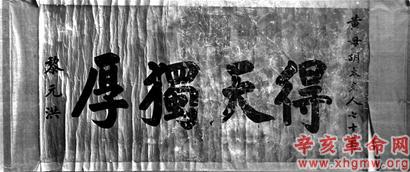 黄母胡太夫人七十
得天獨厚
黎元洪
辛亥革命网
www.xhgmw.org